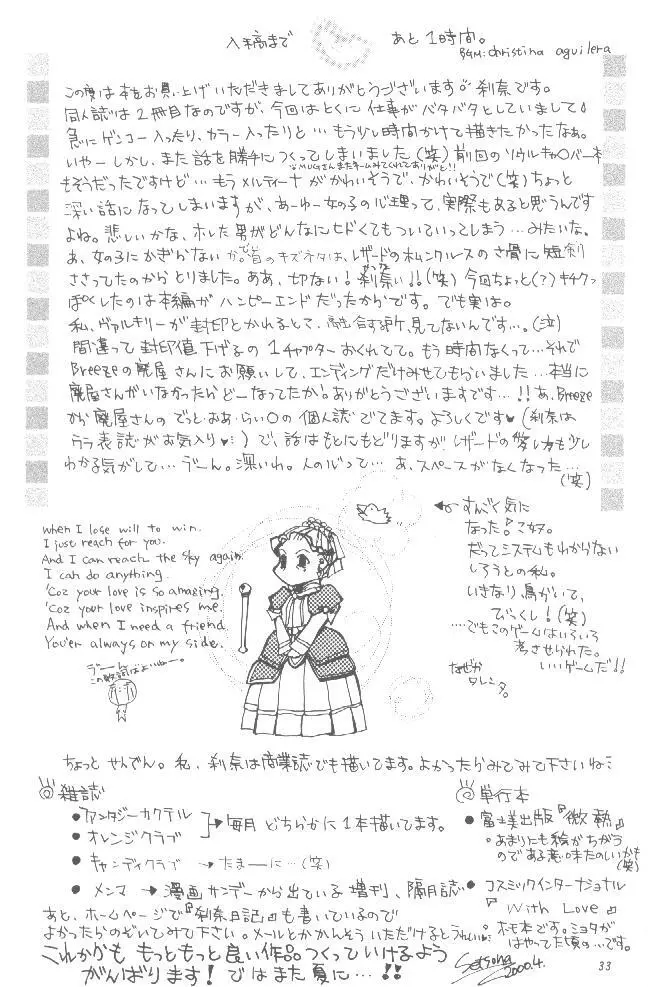 入稿まで あと1時間。
BGM: christina aguilera
この度は本をお買い上げいただきましてありがとうございます。刹奈です。
同人誌は2冊目なのですが、今回はとくに仕事がバタバタとしていまして
急にゲンコー入ったり、カラー入ったりと…もう少し時間かけて描きたかったなあ。
いやーしかし、また話を勝手につくってしまいました(笑)前回のソウルキャ○バー本
もそうだったですけど…もうメルティーナがかわいそうで、かわいそうで(笑)ちょっと
深い話になってしまいますが、あーゆー女の子の心理って、実際もあると思うんです
よね。悲しいかな、ホレた男がどんなにヒドくてもついていってしまう…みたいな。
あ、女の子にかぎらないか。で首のキズネタは、レザードのホムンクルスの背骨に短剣
ささってたのからとりました。ああ、切ない!刹奈い!!(笑)今回ちょっと(?)キチクっ
ぽくしたのは本編がハッピーエンドだったからです。でも実は。
私、ヴァルキリーが封印とかれるとこ、融合する所、見てないんです…。(泣)
間違って封印値下げるの1チャプターおくれてて。もう時間なくって…それで
Breezeの廃屋さんにお願いして、エンディングだけみせてもらいました…本当に
廃屋さんがいなかったらどーなってたか!ありがとうございますです…!!あ、Breeze
から廃屋さんのでっと・おあ・らい○の個人誌でてます。よろしくです♥(刹奈は
ララ表誌がお気入り♥)で、話はもとにもどりますがレザードの
わかる気がして…うーん。深いわ。人の心って…あ、スペースがなくなった…
(笑)
when I lose will to win.
I just reach for you.
And I can reach the sky again.
I can do anything.
'Coz your love is so amazing.
'Coz your love inspires me.
And when I need a friend
You'er always on my side.
うーん
この歌詞はよいねー。
すんごく気に
なった『コ奴。
だってシステムもわからない
しろうとの私。
いきなり鳥がいて、
びっくし!(笑)
…でもこのゲームはいろいろ
考させられた。
いいゲームだ!!
なぜか
タレンタ。
ちょっとせんでん。私、刹奈は商業誌でも描いてます。よかったらみてみて下さいね
雑誌
● ファンタジーカクテル
● オレンジクラブ
→毎月どちらかに1本描いてます。
● キャンディクラブ →たまーに…(笑)
● メンマ →漫画サンデーから出ている増刊、隔月誌
単行本
● 富士美出版『微熱』
あまりにも絵がちがう
のである意味たのしいかも
(笑)
● コスミックインターナショナル
『With Love』
ホモ本です。ミョタが
はやってた頃の…です。
あと、ホームページで『刹奈日記』も書いているので
よかったらのぞいてみて下さい。メールとかかんそういただけるとうれしい
これからも もっともっと良い作品つくっていけるよう
がんばります!ではまた夏に…!!
Setsuna
2000.4.
33